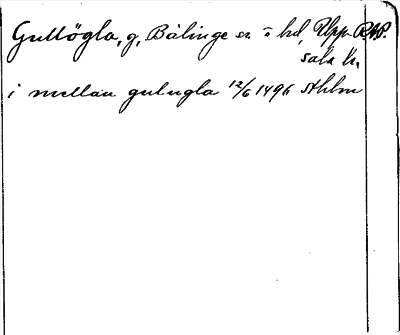 Gullögla, g, Bälinge sn o hd, Upp. RAP.
sala kr
i mellan gulugla 12/6 1496 Sthlm